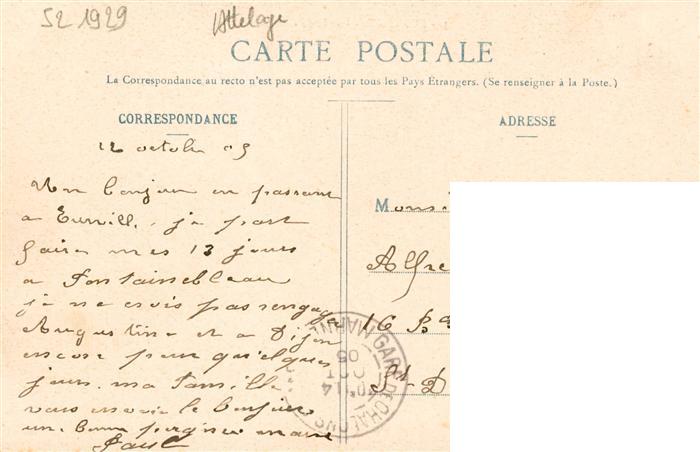 52 1929
Attelage
CARTE POSTALE
La Correspondance au recto n'est pas acceptée par tous les Pays Étrangers. (Se renseigner à la Poste.)
CORRESPONDANCE
ADRESSE
12 octobre 05
Un bonjour en passant
a Eurville, je part
faire mes 13 jours
a Fontainebleau
je ne crois pas
Augustine et a Dijon
encore pour quelques
jours. ma famille
vous envoie le bonjour
une bonne
Paul
Mons
Alfre
16 B
St D
GARE DE CHALONS
14
OCT
05
MARNE